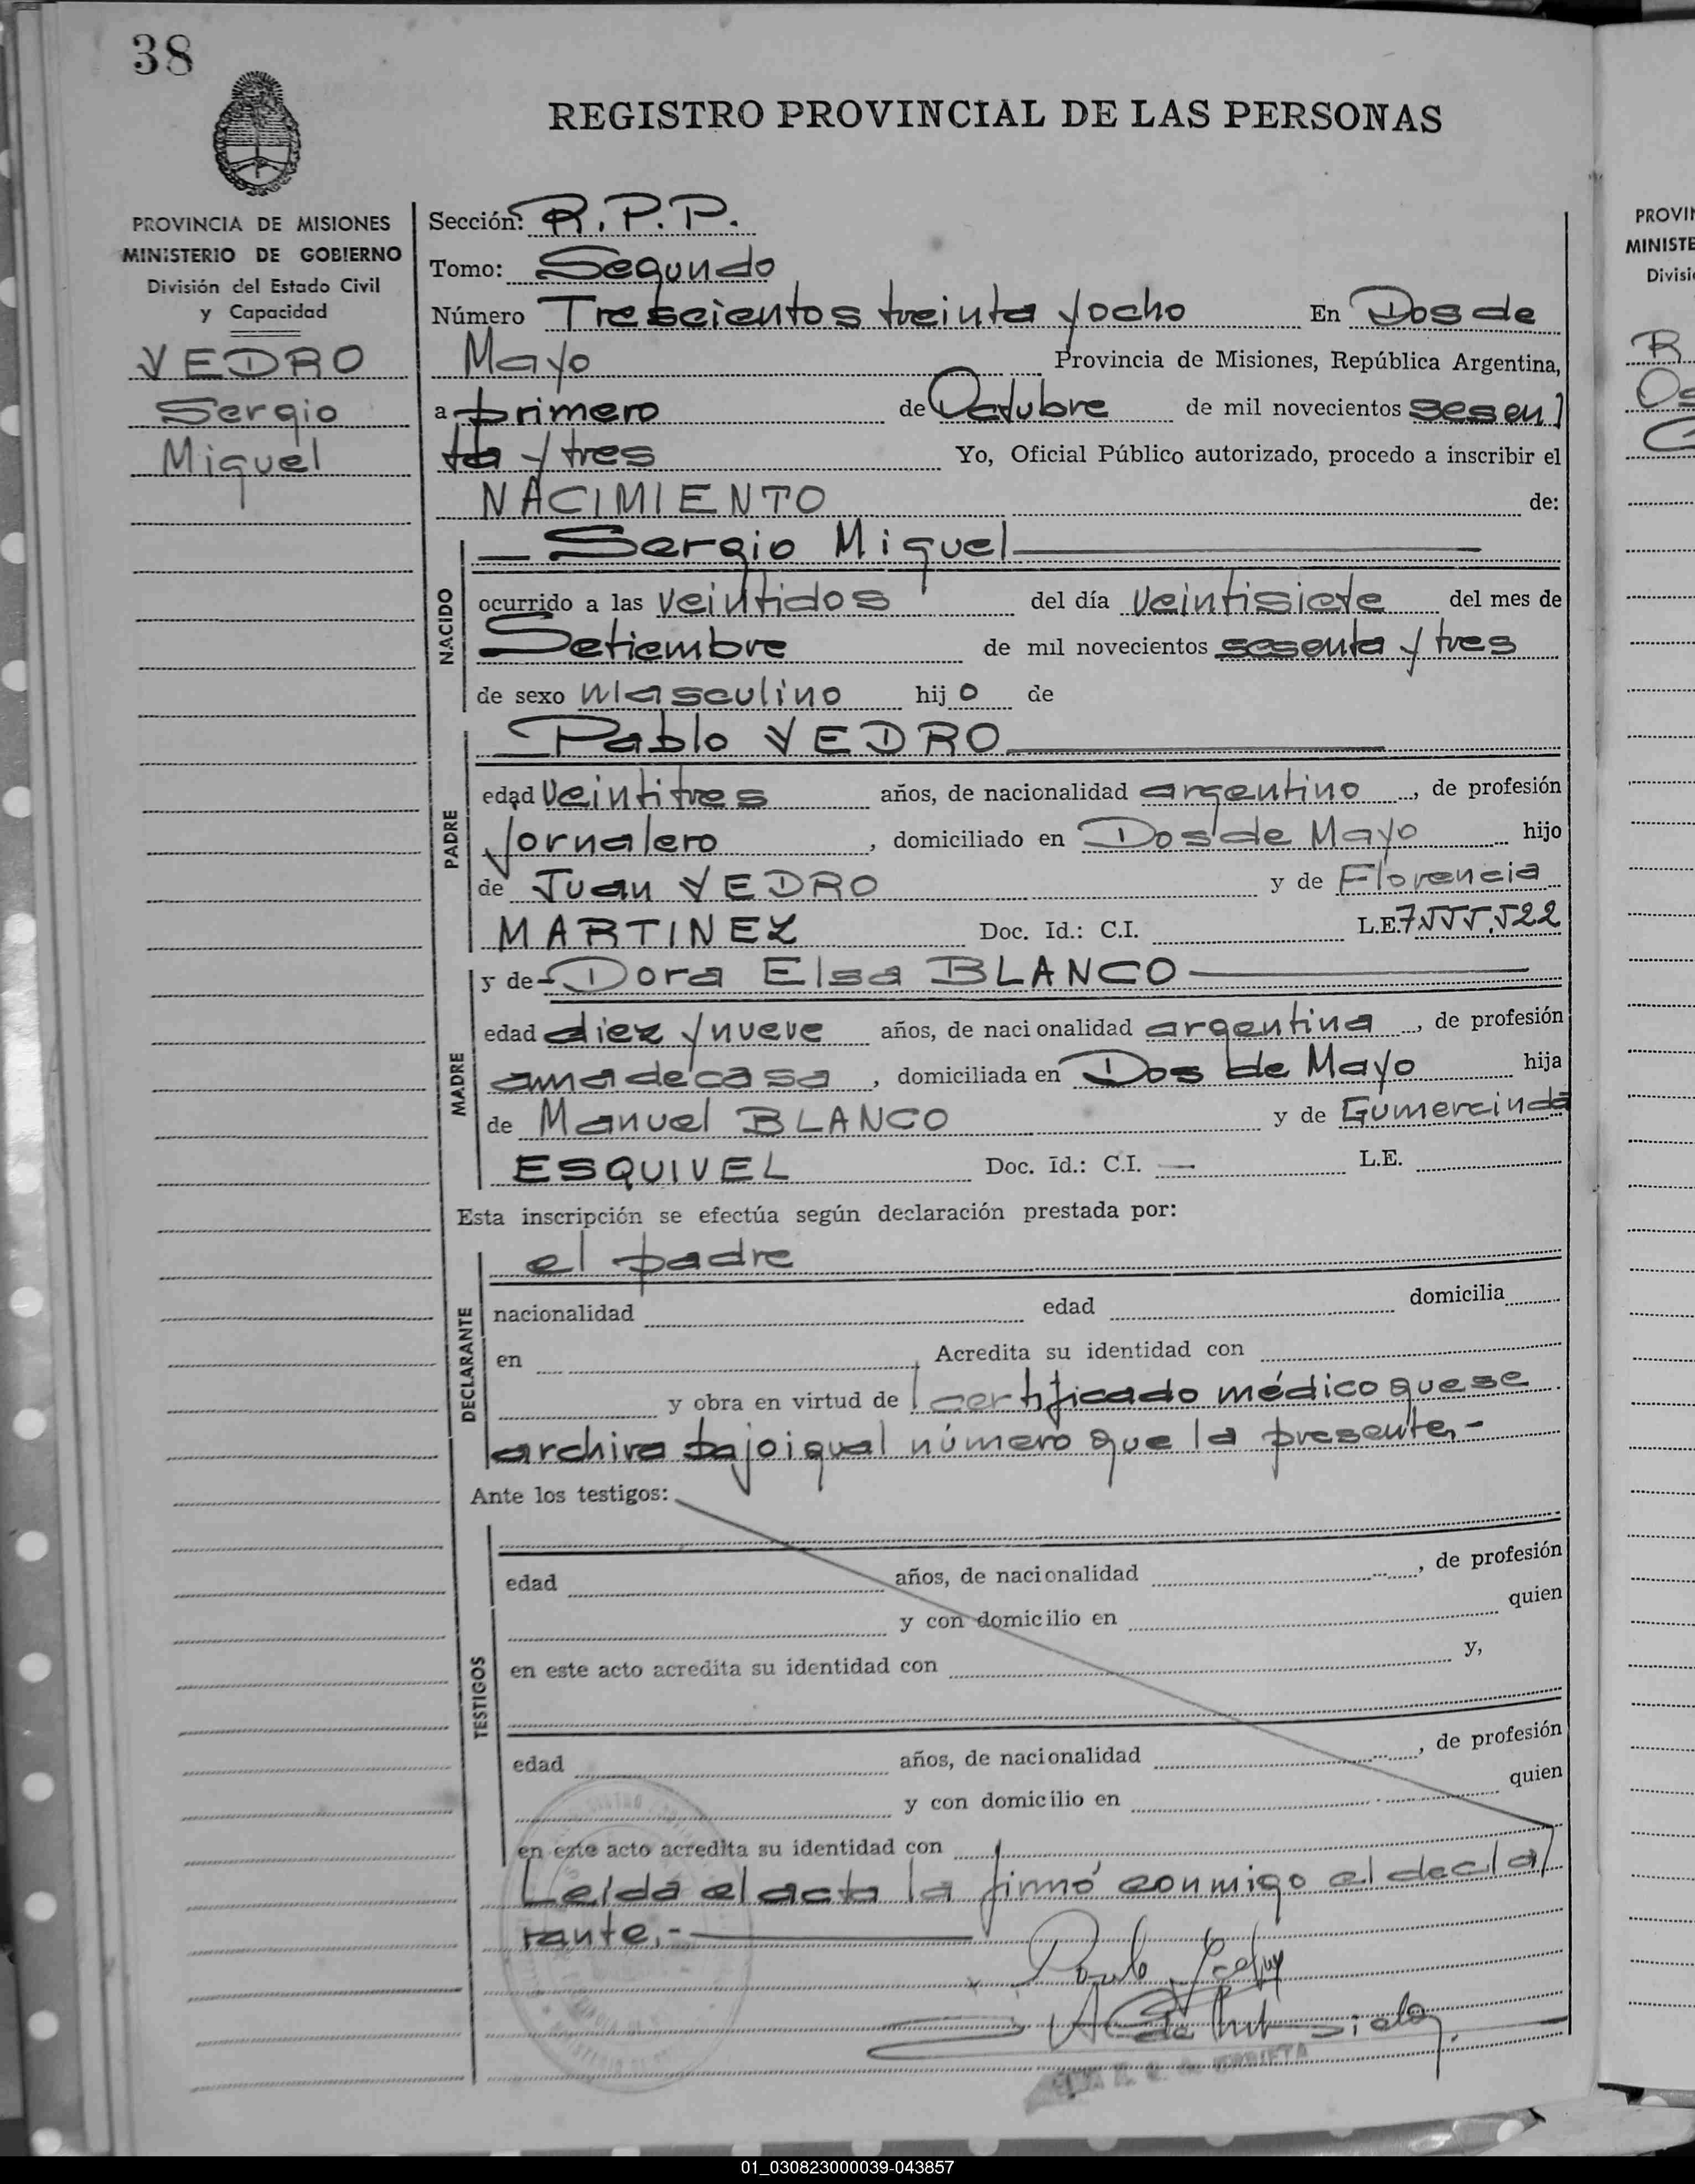 38
REGISTRO PROVINCIAL DE LAS PERSONAS
PROVINCIA DE MISIONES
MINISTERIO DE GOBIERNO
División del Estado Civil
y Capacidad
VEDRO
Sergio
Miguel
Sección: R.P.P.
Tomo: Segundo
Número Trescientos treinta y ocho En Dos de
Mayo Provincia de Misiones, República Argentina,
a primero de Octubre de mil novecientos sesen
ta y tres Yo, Oficial Público autorizado, procedo a inscribir el
NACIMIENTO de:
NACIDO
Sergio Miguel
ocurrido a las veintidos del día veintisiete del mes de
Setiembre de mil novecientos sesenta y tres
de sexo masculino hijo de
PADRE
Pablo VEDRO
edad veintitres años, de nacionalidad argentino, de profesión
Jornalero, domiciliado en Dos de Mayo hijo
de Juan VEDRO y de Florencia
MARTINEZ Doc. Id.: C.I. L.E. 7.555.522
MADRE
y de Dora Elsa BLANCO
edad diez y nueve años, de nacionalidad argentina, de profesión
ama de casa, domiciliada en Dos de Mayo hija
de Manuel BLANCO y de Gumercinda
ESQUIVEL Doc. Id.: C.I. — L.E.
Esta inscripción se efectúa según declaración prestada por:
DECLARANTE
el padre
nacionalidad edad domicilia
en Acredita su identidad con
y obra en virtud de certificado médico que se
archiva bajo igual número que la presente.-
Ante los testigos:
TESTIGOS
edad años, de nacionalidad , de profesión
y con domicilio en quien
en este acto acredita su identidad con y,
edad años, de nacionalidad , de profesión
y con domicilio en quien
en este acto acredita su identidad con
Leída el acta la firmó conmigo el decla
rante.-
PROVIN
MINISTE
Divisi
R
Os
01_030823000039-043857